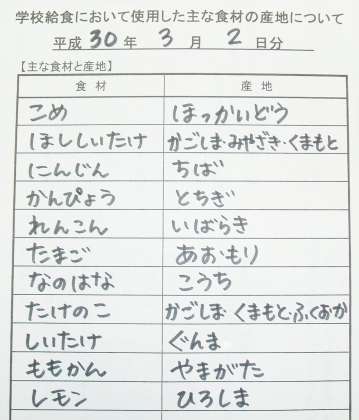 学校給食において使用した主な食材の産地について
平成 30 年 3 月 2 日分
【主な食材と産地】
食材 産地
こめ ほっかいどう
ほししいたけ かごしま・みやざき・くまもと
にんじん ちば
かんぴょう とちぎ
れんこん いばらき
たまご あおもり
なのはな こうち
たけのこ かごしま くまもと・ふくおか
しいたけ ぐんま
ももかん やまがた
レモン ひろしま